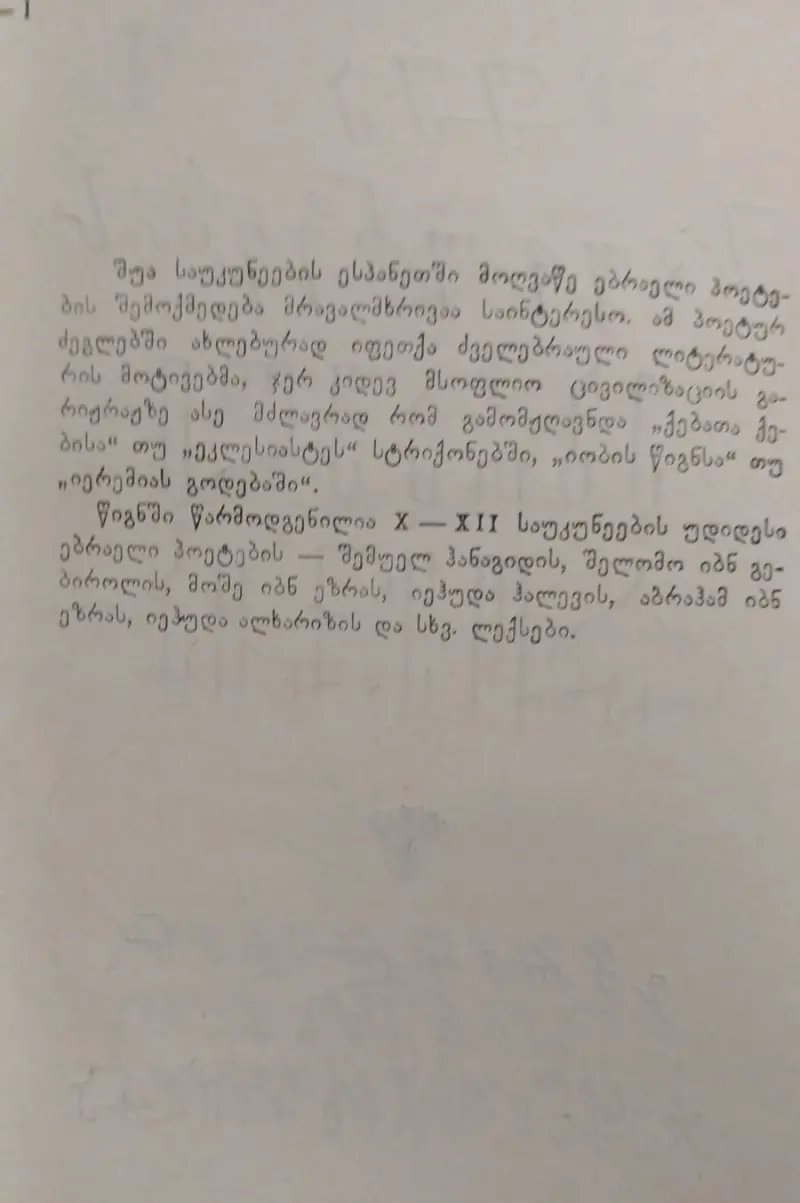 შუა საუკუნეების ესპანეთში მოღვაწე ებრაელი პოეტე-
ბის შემოქმედება მრავალმხრივაა საინტერესო. ამ პოეტურ
ძეგლებში ახლებურად იფეთქა ძველებრაული ლიტერატუ-
რის მოტივებმა, ჯერ კიდევ მსოფლიო ცივილიზაციის გა-
რიჟრაჟზე ასე მძლავრად რომ გამომჟღავნდა „ქებათა ქე-
ბისა“ თუ „ეკლესიასტეს“ სტრიქონებში, „იობის წიგნსა“ თუ
„იერემიას გოდებაში“.
წიგნში წარმოდგენილია X — XII საუკუნეების უდიდესი
ებრაელი პოეტების — შემუელ ჰანაგიდის, შელომო იბნ გე-
ბიროლის, მოშე იბნ ეზრას, იეჰუდა ჰალევის, აბრაჰამ იბნ
ეზრას, იეჰუდა ალხარიზის და სხვ. ლექსები.